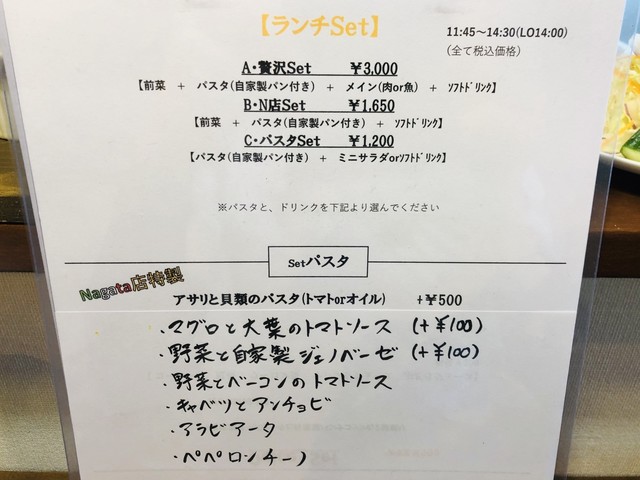 【ランチSet】
11:45～14:30(LO14:00)
(全て税込価格)
A・贅沢Set ￥3,000
【前菜 + パスタ(自家製パン付き) + メイン(肉or魚) + ｿﾌﾄﾄﾞﾘﾝｸ】
B・N店Set ￥1,650
【前菜 + パスタ(自家製パン付き) + ｿﾌﾄﾄﾞﾘﾝｸ】
C・パスタSet ￥1,200
【パスタ(自家製パン付き) + ミニサラダorｿﾌﾄﾄﾞﾘﾝｸ】
※パスタと、ドリンクを下記より選んでください
Setパスタ
Nagata店特製
アサリと貝類のパスタ(トマトorオイル) +￥500
・マグロと大葉のトマトソース (+￥100)
・野菜と自家製ジェノベーゼ (+￥100)
・野菜とベーコンのトマトソース
・キャベツとアンチョビ
・アラビアータ
・ペペロンチーノ